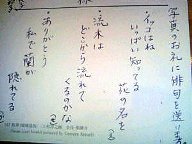 写真のお礼に俳句を送ります
・イッコはね
いっぱい知ってる
花の名を
・流木は
どこから流れて
くるのかな
・ありがとう
私で蘭か
隠れてる